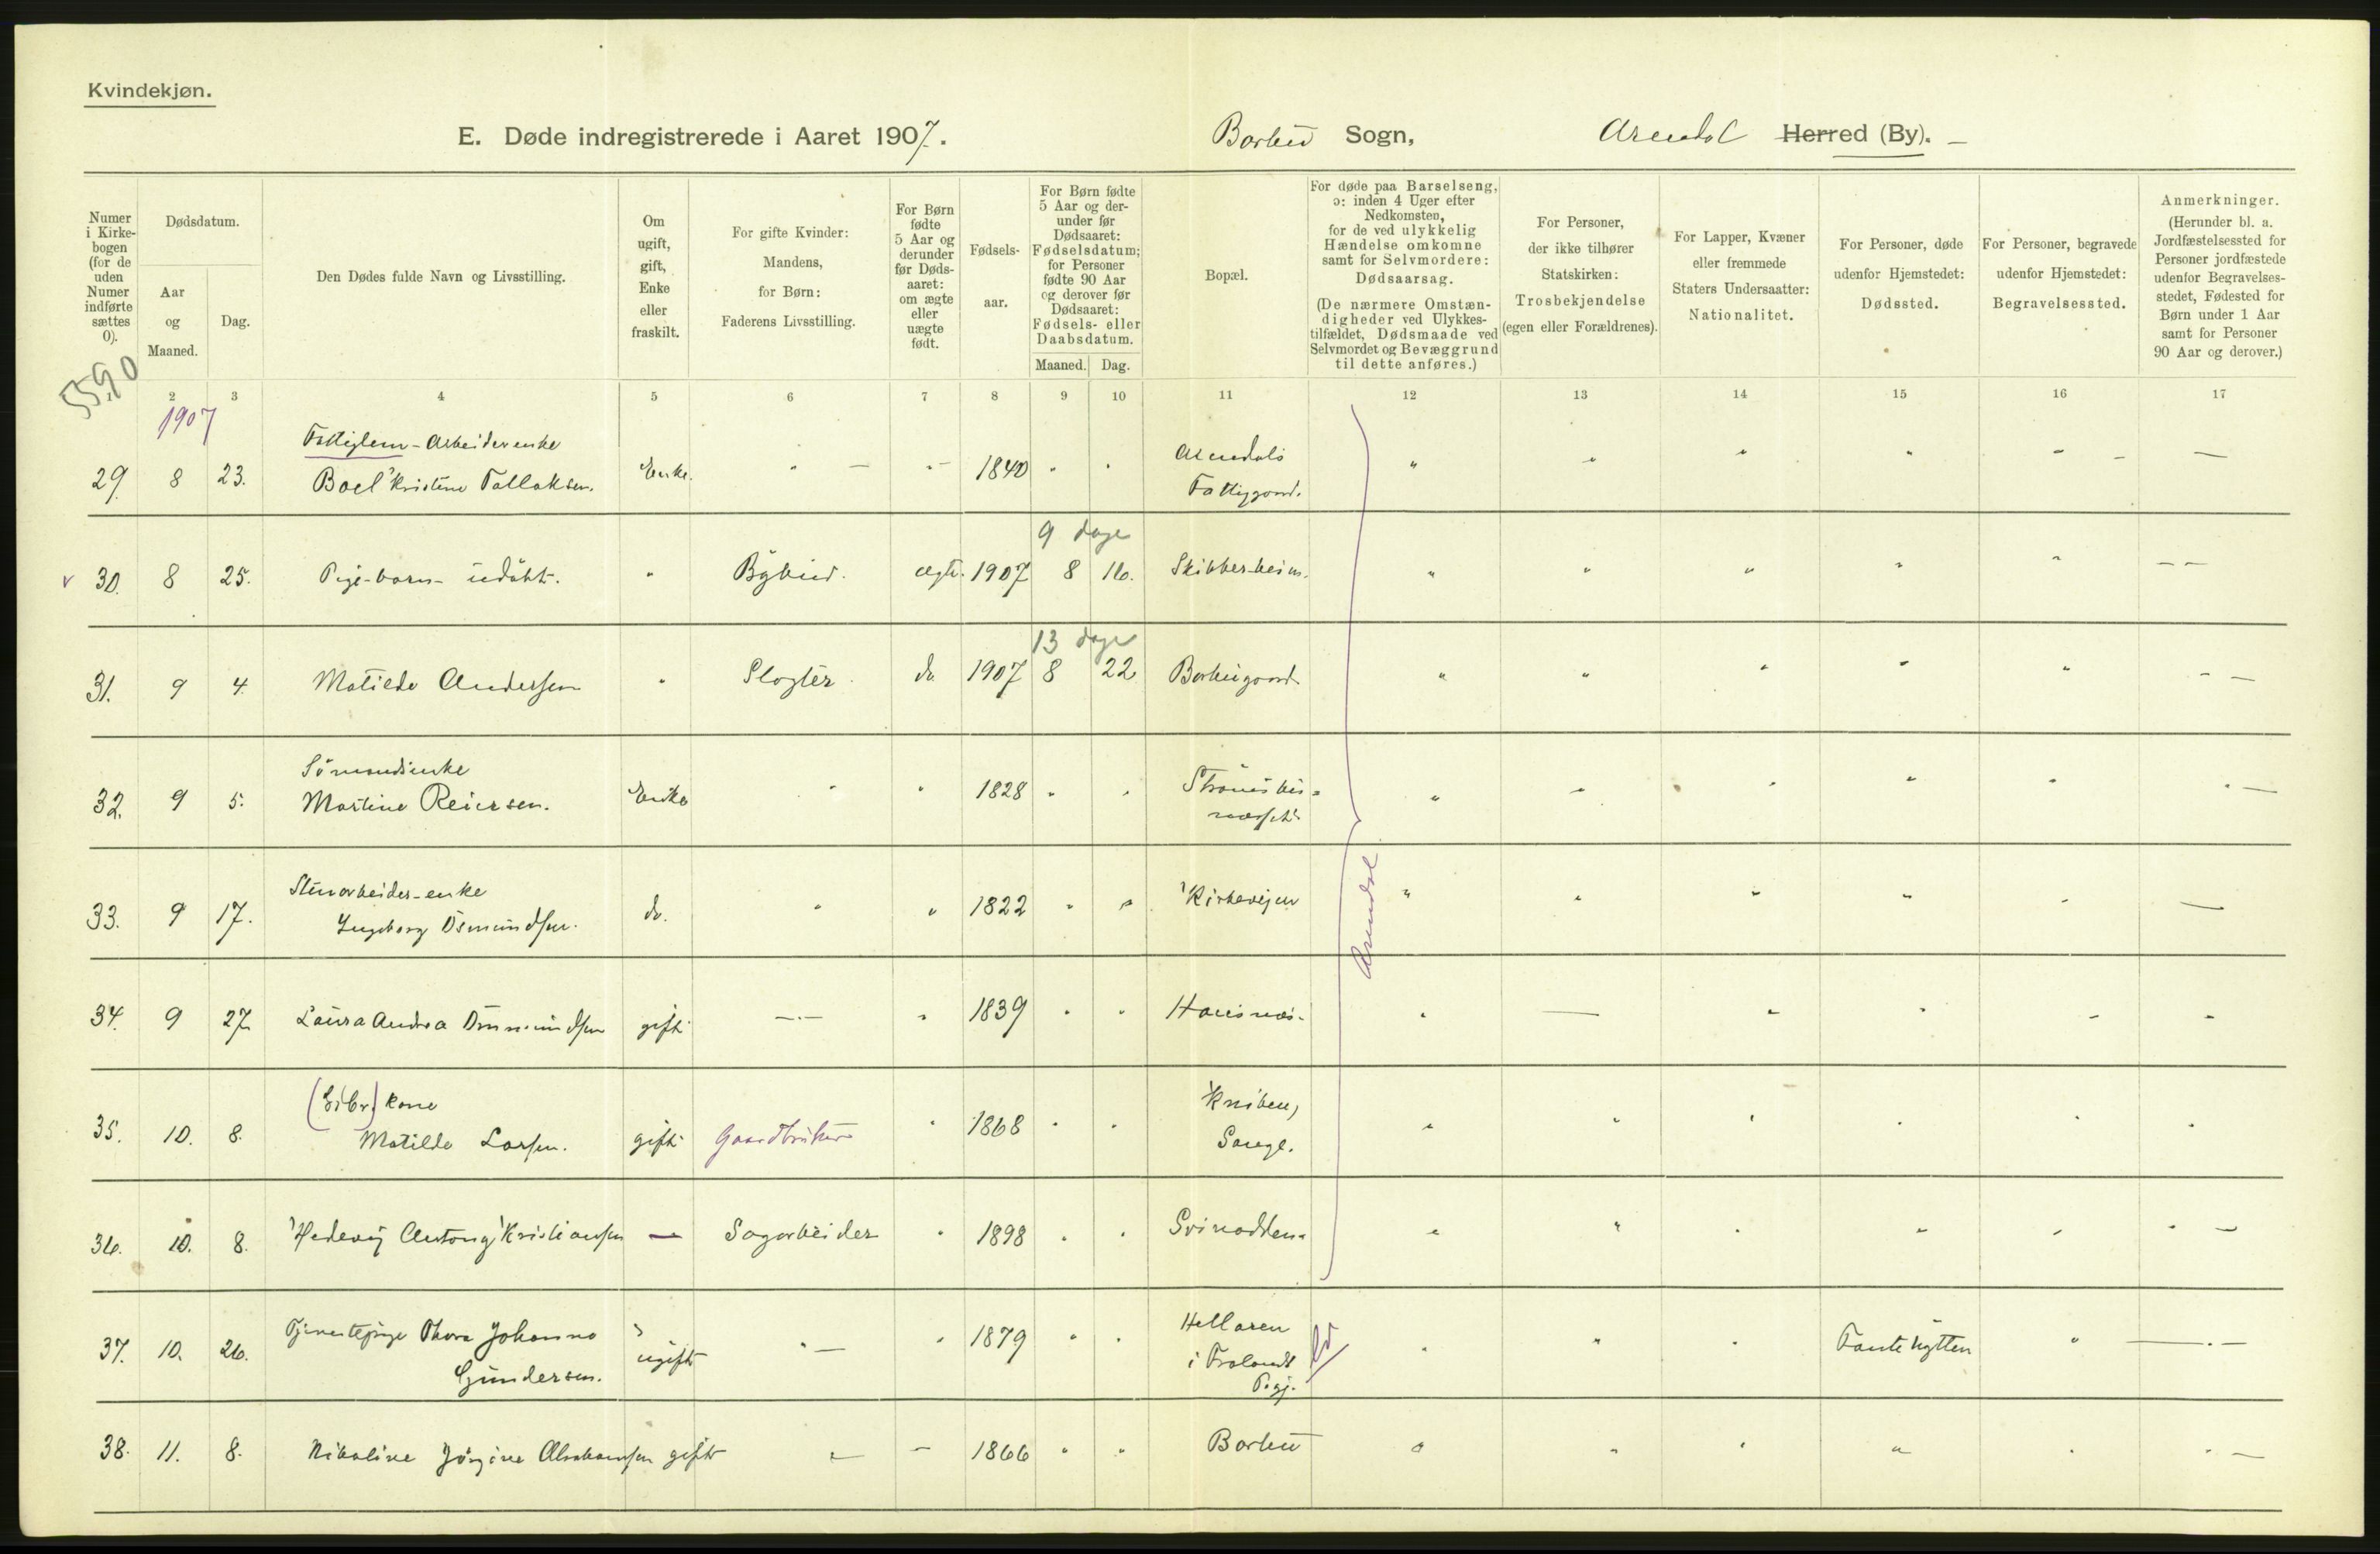 Kvindekjøn.
E. Døde indregistrerede i Aaret 1907. Barbu Sogn, Arendal Herred (By). –
Numer i Kirkebogen (for de uden Numer indførte sættes 0).
Dødsdatum.
Aar og Maaned.
Dag.
Den Dødes fulde Navn og Livsstilling.
Om ugift, gift, Enke eller fraskilt.
For gifte Kvinder: Mandens, for Børn: Faderens Livsstilling.
For Børn fødte 5 Aar og derunder før Dødsaaret: om ægte eller uægte født.
Fødselsaar.
For Børn fødte 5 Aar og derunder før Dødsaaret: Fødselsdatum; for Personer fødte 90 Aar og derover før Dødsaaret: Fødsels- eller Daabsdatum.
Maaned. Dag.
Bopæl.
For døde paa Barselseng, ɔ: inden 4 Uger efter Nedkomsten, for de ved ulykkelig Hændelse omkomne samt for Selvmordere: Dødsaarsag.
(De nærmere Omstændigheder ved Ulykkestilfældet, Dødsmaade ved Selvmordet og Bevæggrund til dette anføres.)
For Personer, der ikke tilhører Statskirken: Trosbekjendelse (egen eller Forældrenes).
For Lapper, Kvæner eller fremmede Staters Undersaatter: Nationalitet.
For Personer, døde udenfor Hjemstedet: Dødssted.
For Personer, begravede udenfor Hjemstedet: Begravelsessted.
Anmerkninger.
(Herunder bl. a. Jordfæstelsessted for Personer jordfæstede udenfor Begravelsesstedet, Fødested for Børn under 1 Aar samt for Personer 90 Aar og derover.)
5590
2 3 4 5 6 7 8 9 10 11 12 13 14 15 16 17
1907
Fattiglem - Arbeiderenke
29. 8 23. Boel Kristine Tallaksen. Enke. " — "– 1840 " " Arendals Fattiggaard. " " " " " – —
9 dage
v 30. 8 25. Pige-barn - udøbt. " Bybud. ægte. 1907 8 16. Skibberheim. " " " " " – –
13 dage
31. 9 4. Matilde Andersen " Slagter. do. 1907 8 22 Barbugaard. " " " " " – –
Sømandsenke
32. 9 5. Martine Reiersen. Enke " " 1828 " " " " " " " " —
Stenarbeider-enke
33. 9 17. Ingeborg Osmundsen. do. " " 1822 " " Kirkeveien " " " " " —
Arendal
34. 9 27. Laura Andrea gift —.— " 1839 " " " — " " " "
kone
35. 10. 8. Matilde Larsen. gift Gaardbruker " 1868 " " Kniben, Songe. " " " " " "
36. 10. 8. Hedevig Antong Kristiansen — Sagarbeider " 1898 " " Svinodden. " " " " " " —
37. 10. 26. Tjenestepige Thora Johanna Gundersen. ugift " — " 1879 " " Hellaren i Frolands Pgj. " " " Fantehytten " —.—
38. 11. 8. Nikoline Jørgine Abrahamsen gift — – 1866 " " Barbu " " " " " " —